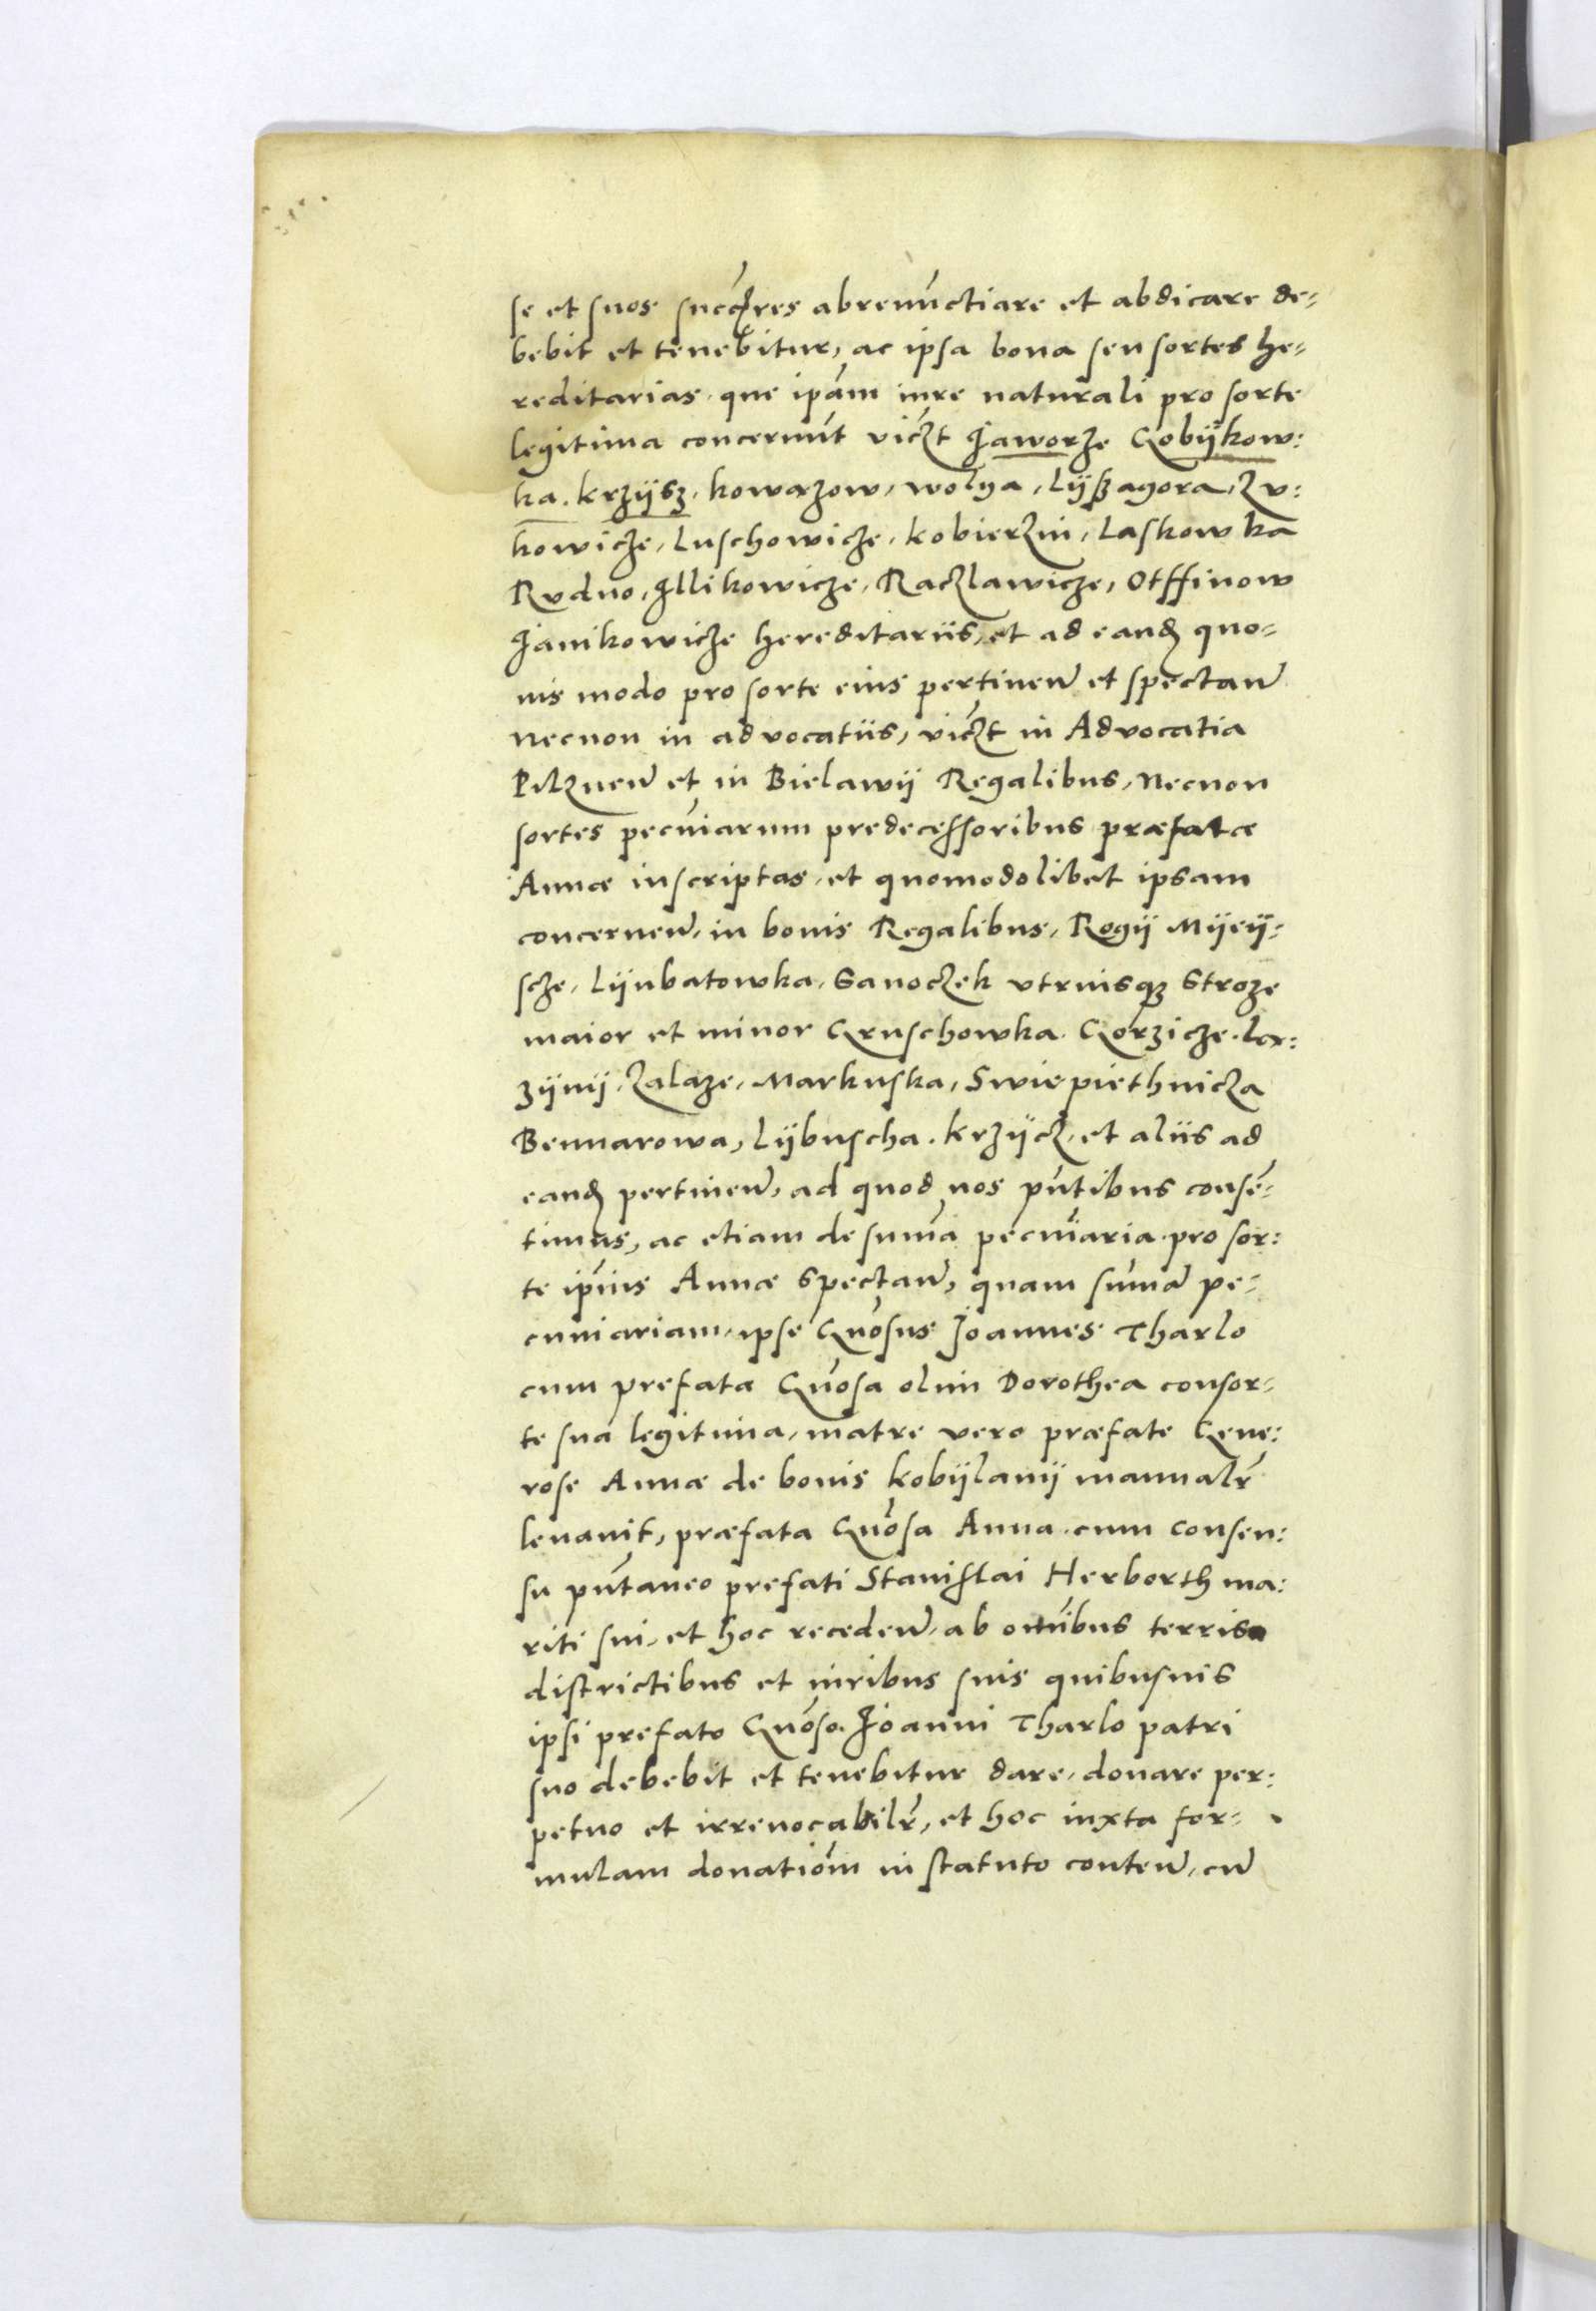 se et suos succ̃res abrenũctiare et abdicare de-
bebit et tenebitur, ac ipsa bona seu sortes he-
reditarias, que ipãm iure naturali pro sorte
legitima concernũt viczt Jaworze Gobijkow:
ka. Krzijsz, Kowazow, Wolya, Lijßagora, Zu:
kowicze, Luschowicze, Kobierzin, Laskowka
Rudno, Illikowicze, Raczlawicze, Otffinow
Janikowicze hereditariis, et ad eandem quo-
uis modo pro sorte eius pertinen̄ et spectan̄
necnon in advocatiis, viczt in Advocatia
Pilznen̄ et in Bielawij Regalibus, Necnon
sortes pecuniarum predecessoribus præfatæ
Annæ inscriptas, et quomodolibet ipsam
concernen̄, in bonis Regalibus, Rogij Mijeij-
scze, Lijubatowka, Sanoczek utriusque Stroze
maior et minor Gruschowka. Gorzicze. Ler:
zijnij, Zalaze, Markuska, Swiepiethnicza
Bennarowa, Lijbuscha. Krzijcz, et aliis ad
eandem pertinen̄, ad quod nos pñtibus consẽ-
timus, ac etiam de sum̃a pecuniaria pro sor:
te ip̃ius Annæ spectan̄, quam sum̃ā pe-
cuniariam, ipse Gñosus Joannes Tharlo
cum prefata Gñosa olim Dorothea consor-
te sua legitima, matre vero præfate Gene:
rose Annæ de bonis Kobijlanij manual̃r
leuauit, præfata Gñosa Anna cum consen:
su pñtaneo prefati Stanislai Herborth ma:
riti sui, et hoc receden̄, ab om̃ibus terris
districtibus et iuribus suis quibusuis
ipsi prefato Gñoso Joanni Tharlo patri
suo debebit et tenebitur dare, donare per:
petuo et irreuocabil̃r, et hoc iuxta for-
mulam donatiõm in statuto conten̄, cū